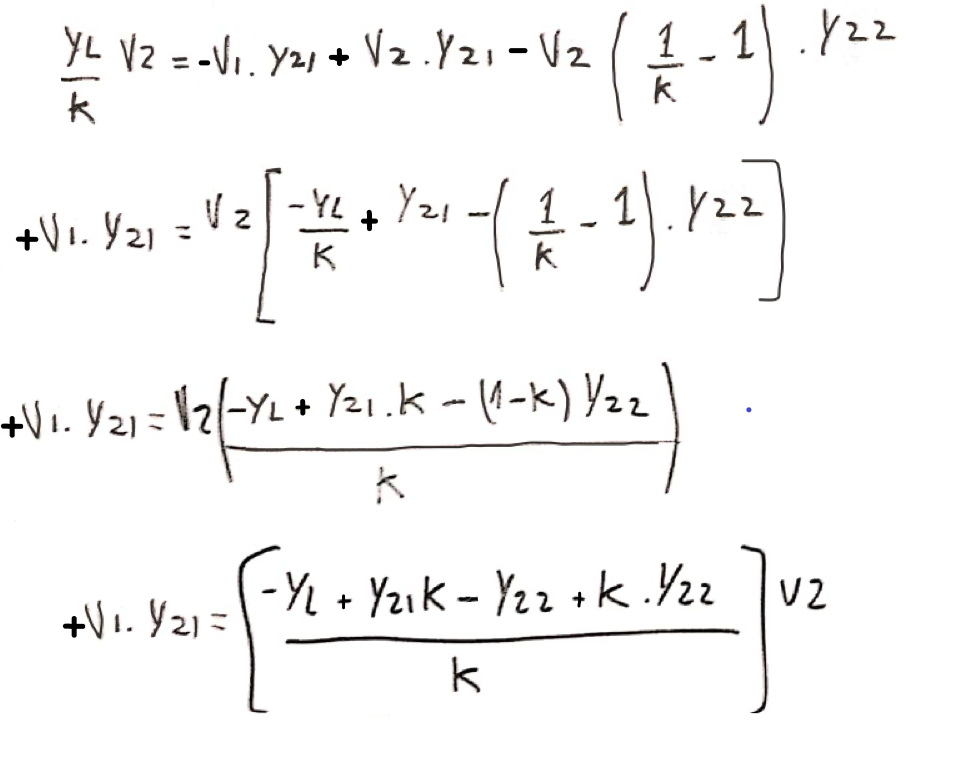 YL/k V2 = -V1. Y21 + V2 .Y21 - V2 (1/k - 1) . Y22
+V1. Y21 = V2 [-YL/K + Y21 - (1/k - 1) . Y22]
+V1. Y21 = V2 (-YL + Y21.k - (1-k) Y22 / k)
+V1. Y21 = [-YL + Y21k - Y22 + k .Y22 / k] V2